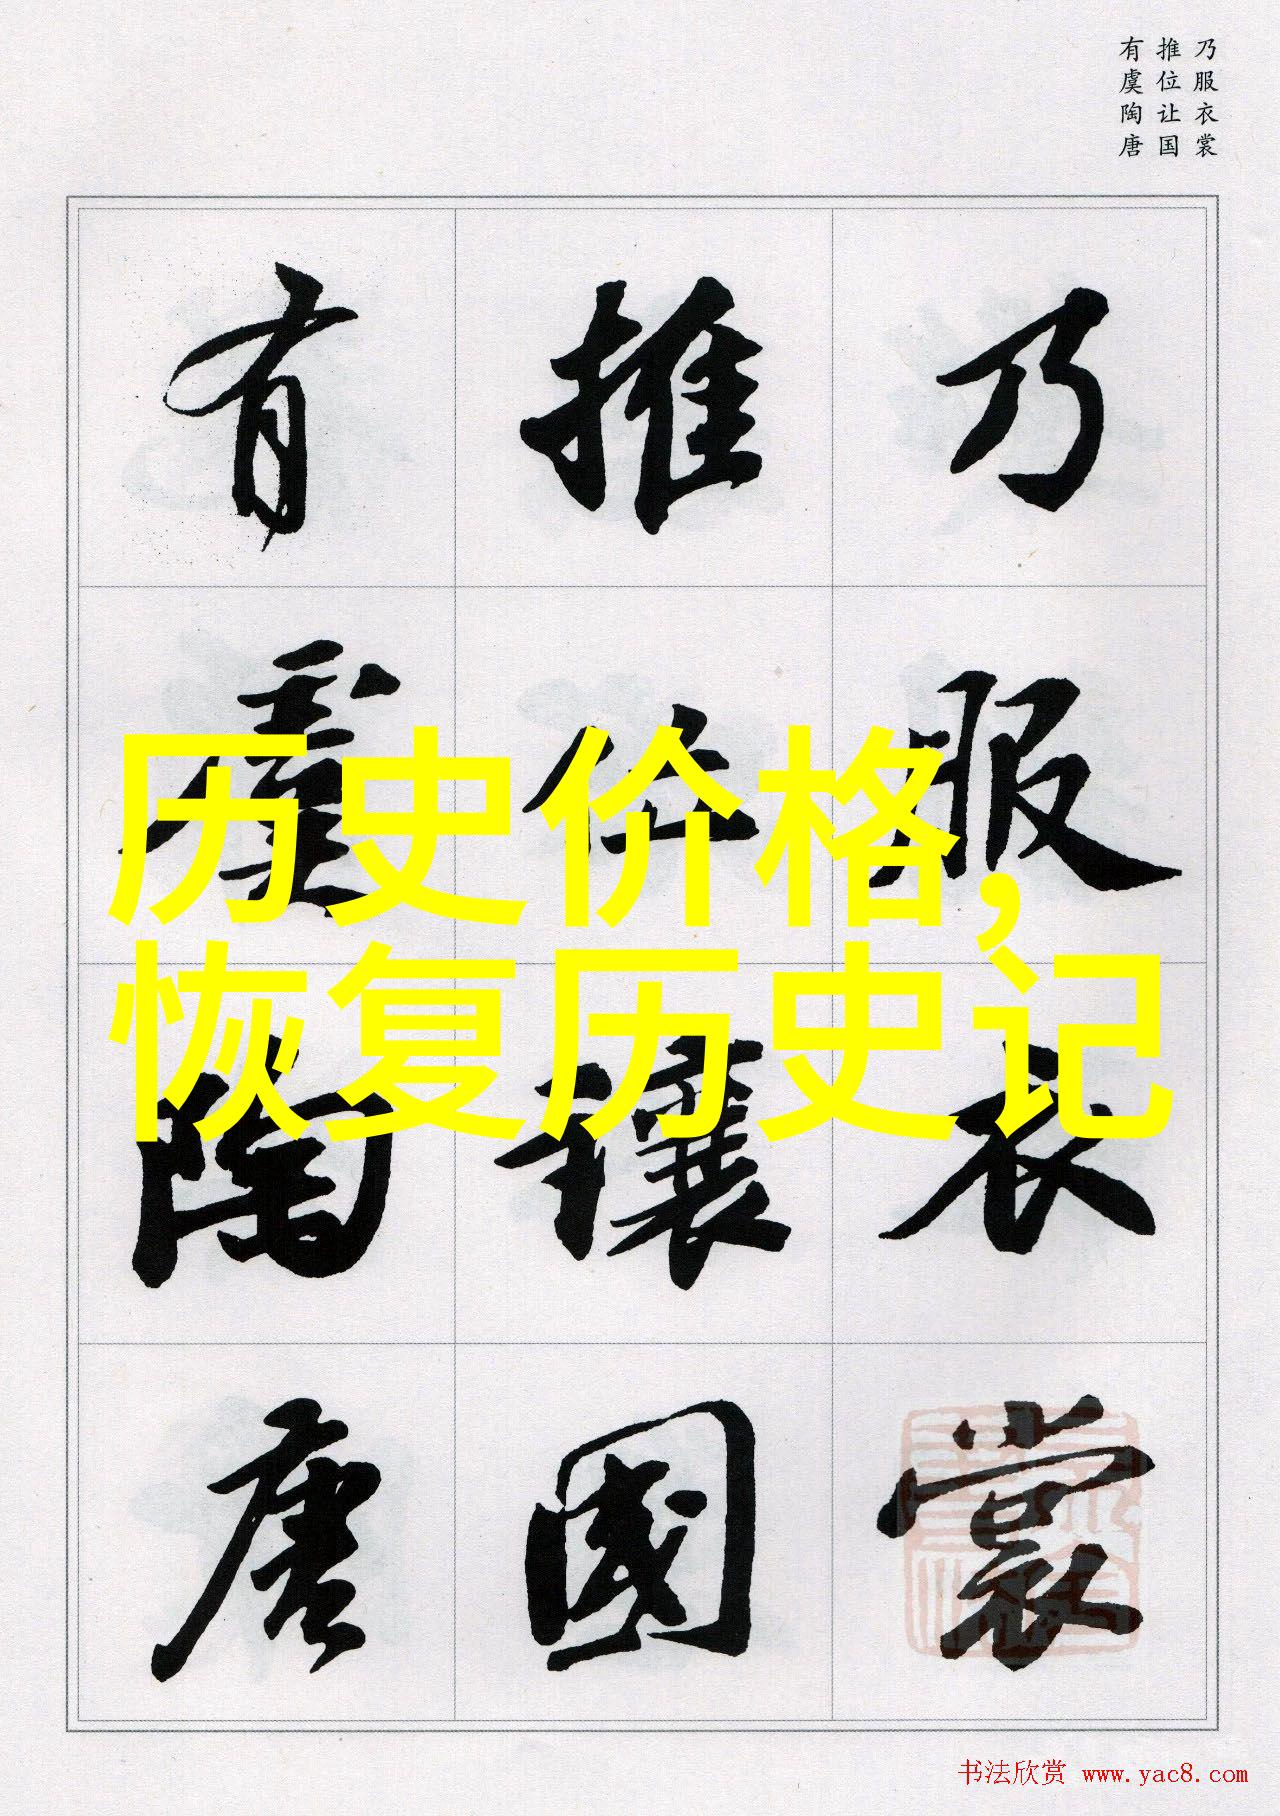 乃服衣裳
推位让国
有虞陶唐
乃服衣裳
推位讓國
有虞陶唐
历史价格,
恢复历史记
书法欣赏 www.yac8.com